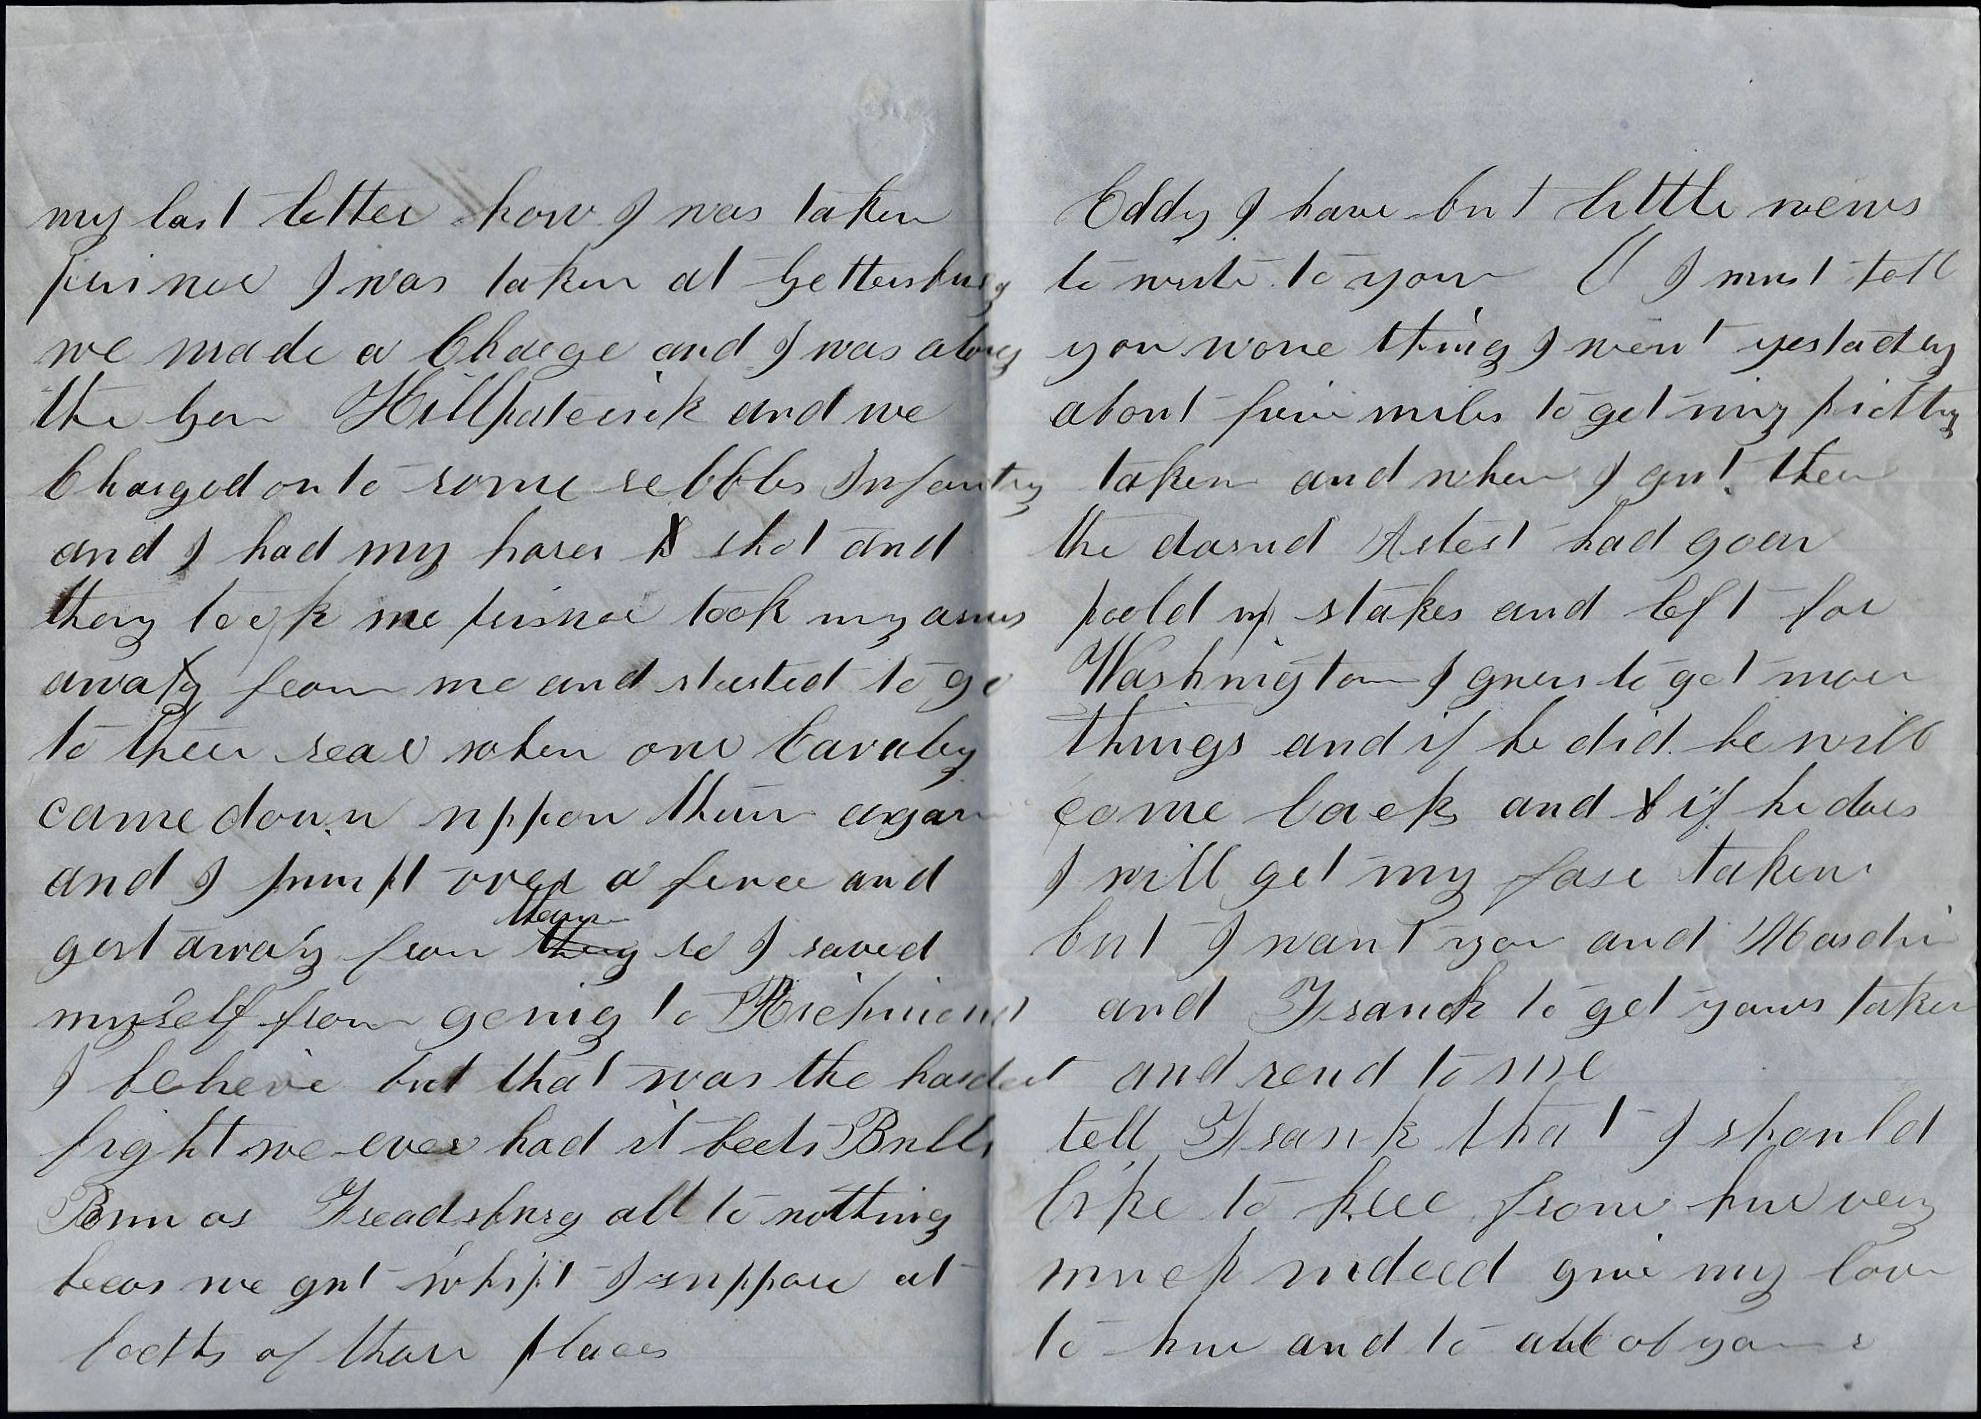 my last letter how I was taken
prisnor I was taken at Gettersburg
we made a Charge and I was along
the Gen Killpaterick and we
Charged on to some rebbles Infantry
and I had my horse shot and
they took me prisnor took my arms
away from me and started to go
to their rear when our Cavalry
came down uppon them again
and I jumpt over a fence and
got away from them they so I saved
myself from going to Richmond
I believe but that was the hardest
fight we ever had it beets Bulls
Bun as Freadsburg all to nothing
becos we got whipt I suppose at
booths of thoes places
Eddy I have but little news
to write to you O I must tell
you wone thing I went yestaday
about five miles to get my picttry
taken and when I got there
the darned Artest had goen
poold up stakes and left for
Washington I guess to get more
things and if he did he will
come back and if he does
I will get my fase taken
but I want you and
and Franck to get yours taken
and send to me
tell Frank that I should
like to heer from him very
much indeed give my love
to him and to all of yours